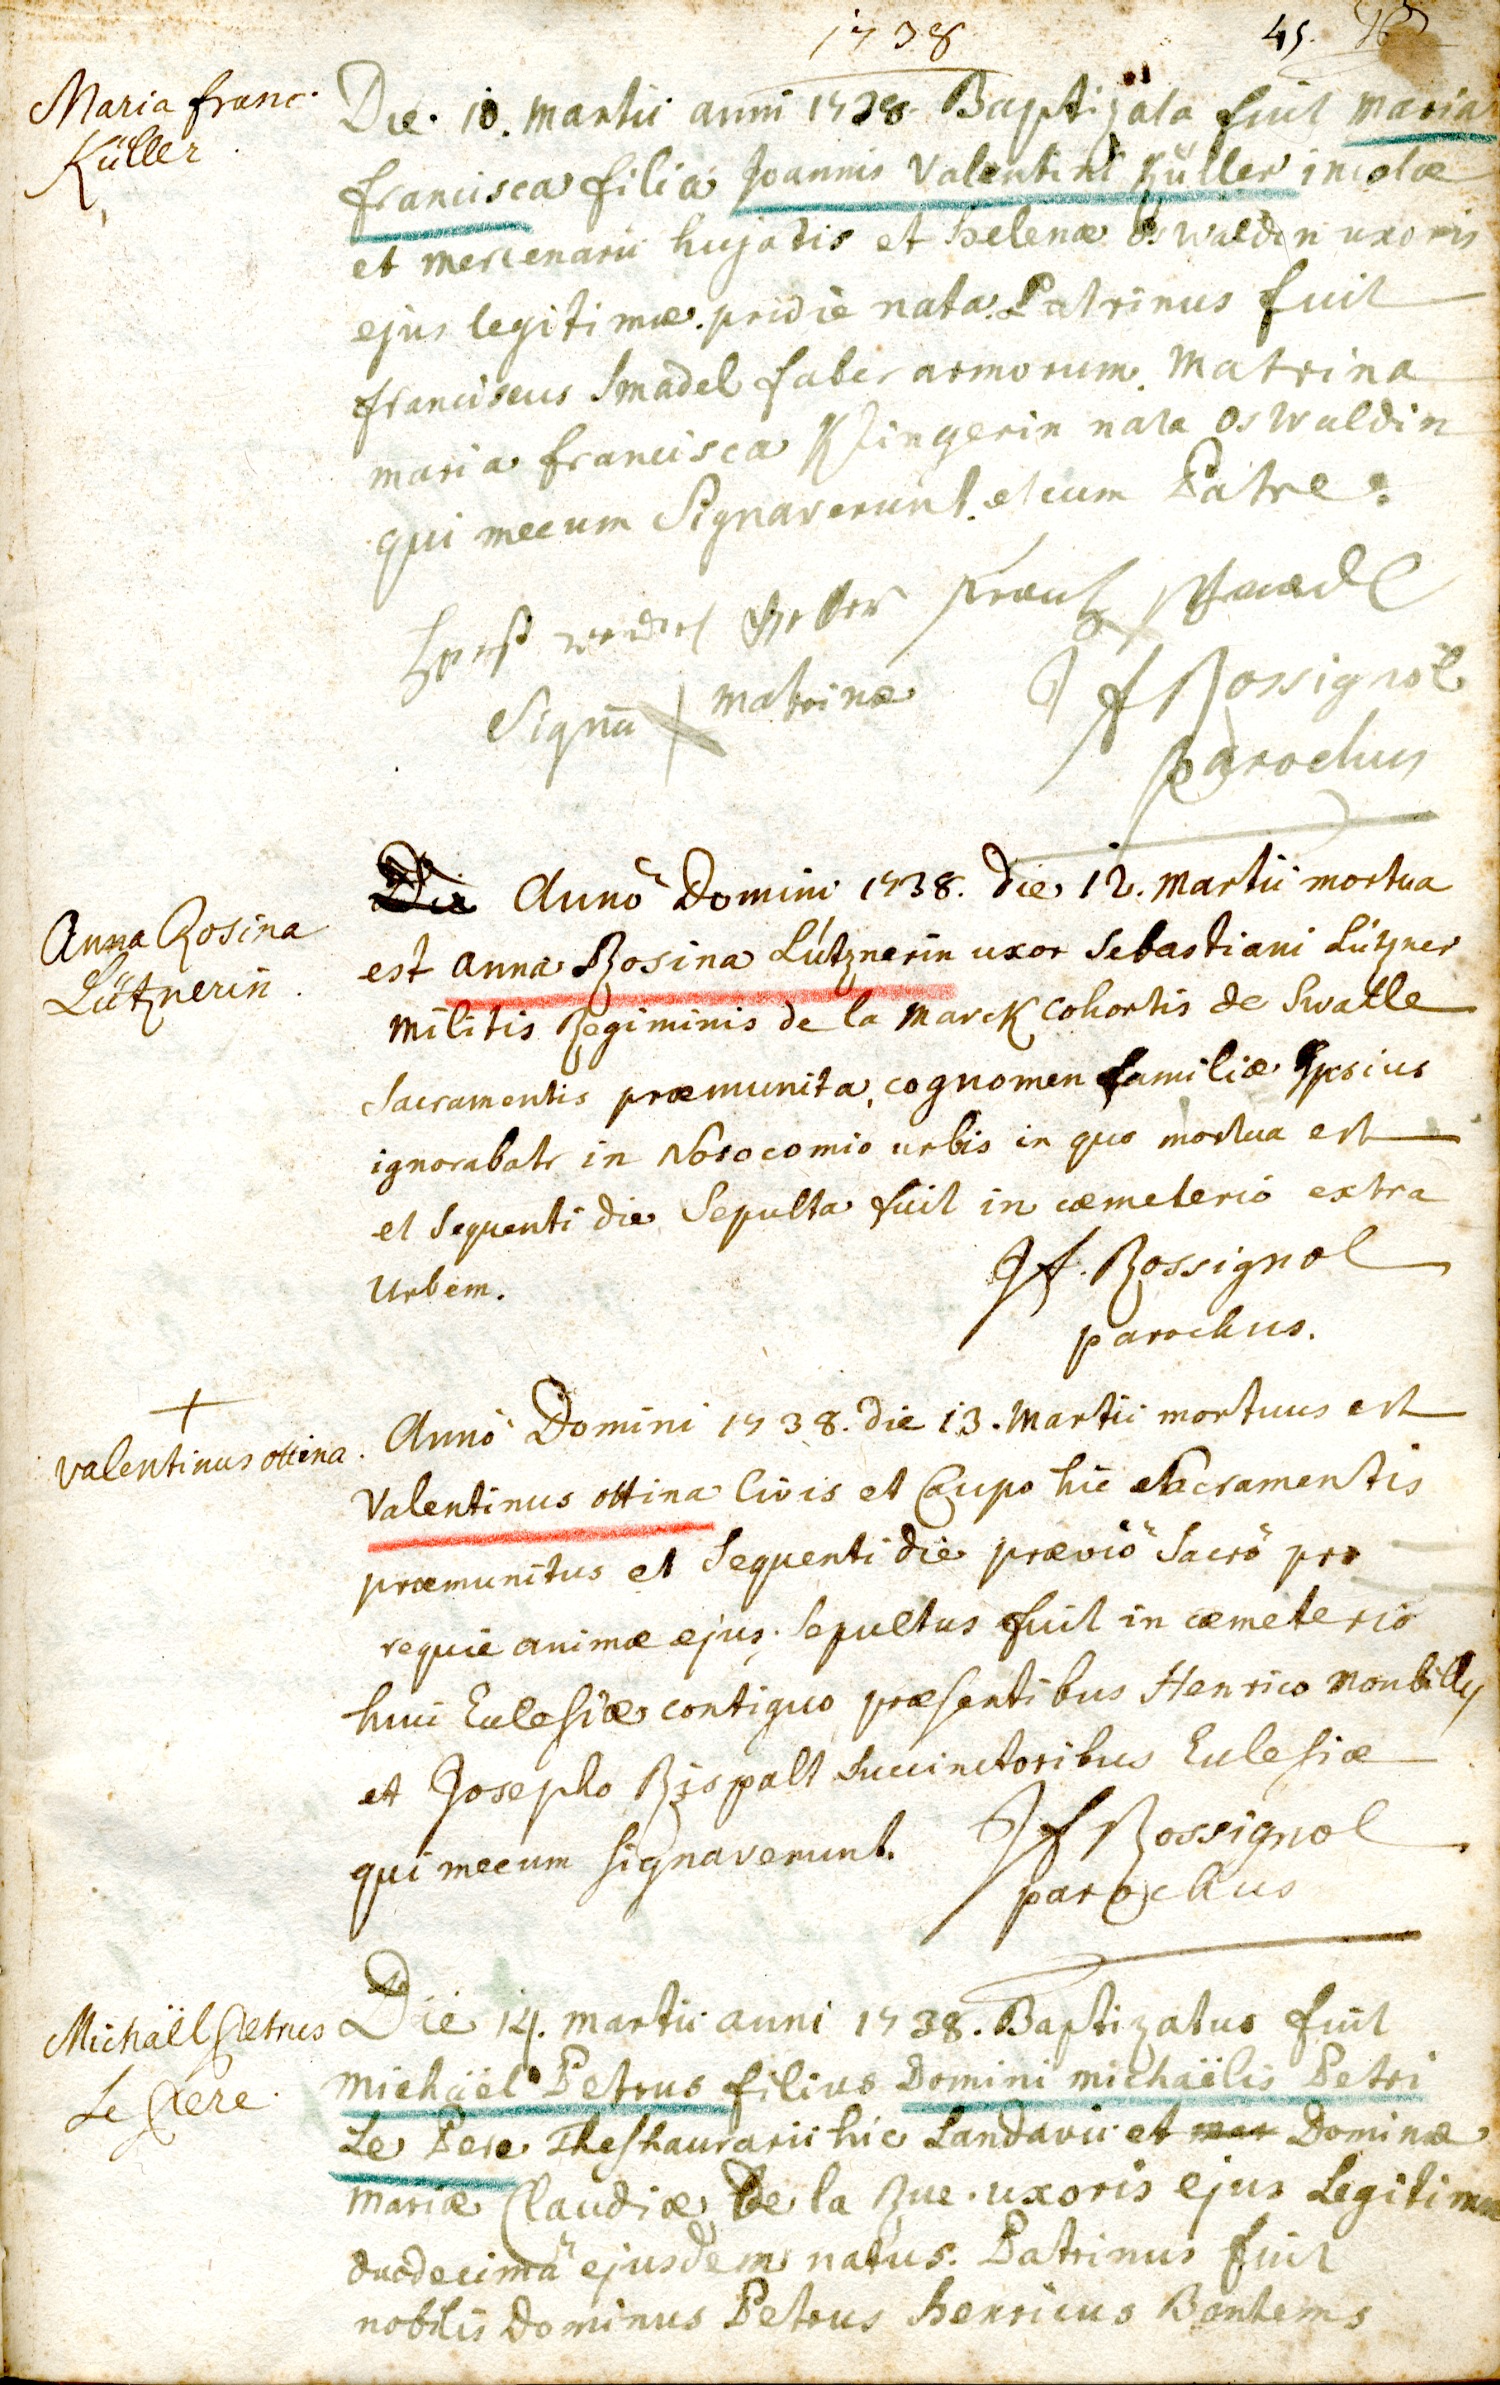 1738
45.
Maria franc.
Küller
Die 10. martii anni 1738 Baptizata fuit maria
francisca filia Joannis Valentini Küller incolæ
et mercenarii hujatis et helenæ oswaldin uxoris
ejus legitimæ. pridie nata. Patrinus fuit
franciscus Smadel faber armorum. Matrina
maria francisca Klingerin nata oswaldin
qui mecum signaverunt. et cum Patre.
Signũ matrinæ
Jf Rossignol
parochus
Anna Rosina
Lütznerin.
Die Annô Domini 1738. die 12. martii mortua
est anna Rosina Lütznerin uxor Sebastiani Lützner
militis Regiminis de la marck cohortis de Swatle
sacramentis præmunita, cognomen familiæ ipsius
ignorabatr in Nosocomio urbis in quo mortua est
et sequenti die sepulta fuit in cæmeterio extra
urbem.
Jf. Rossignol
parochus.
+
valentinus ottina.
Annô Domini 1738. die 13. martii mortuus est
Valentinus ottina Civis et Caupo hic sacramentis
præmunitus et sequenti die præviô sacrô pro
requie animæ ejus. sepultus fuit in cæmeterio
huic Ecclesiæ contiguo præsentibus Henrico monbilly
et Josepho Rispalt succinctoribus Ecclesiæ
qui mecum signaverunt.
Jf Rossignol
parochus
Michaël Petrus
Le Pere.
Die 14. martii anni 1738. Baptizatus fuit
michaël Petrus filius Domini michaëlis Petri
Le Pere Theshaurarii hic Landavii et mar Dominæ
mariæ Claudiæ De la Rue. uxoris ejus Legitimæ
duodecimâ ejusdem natus. Patrinus fuit
nobilis Dominus Petrus henricus Bontems